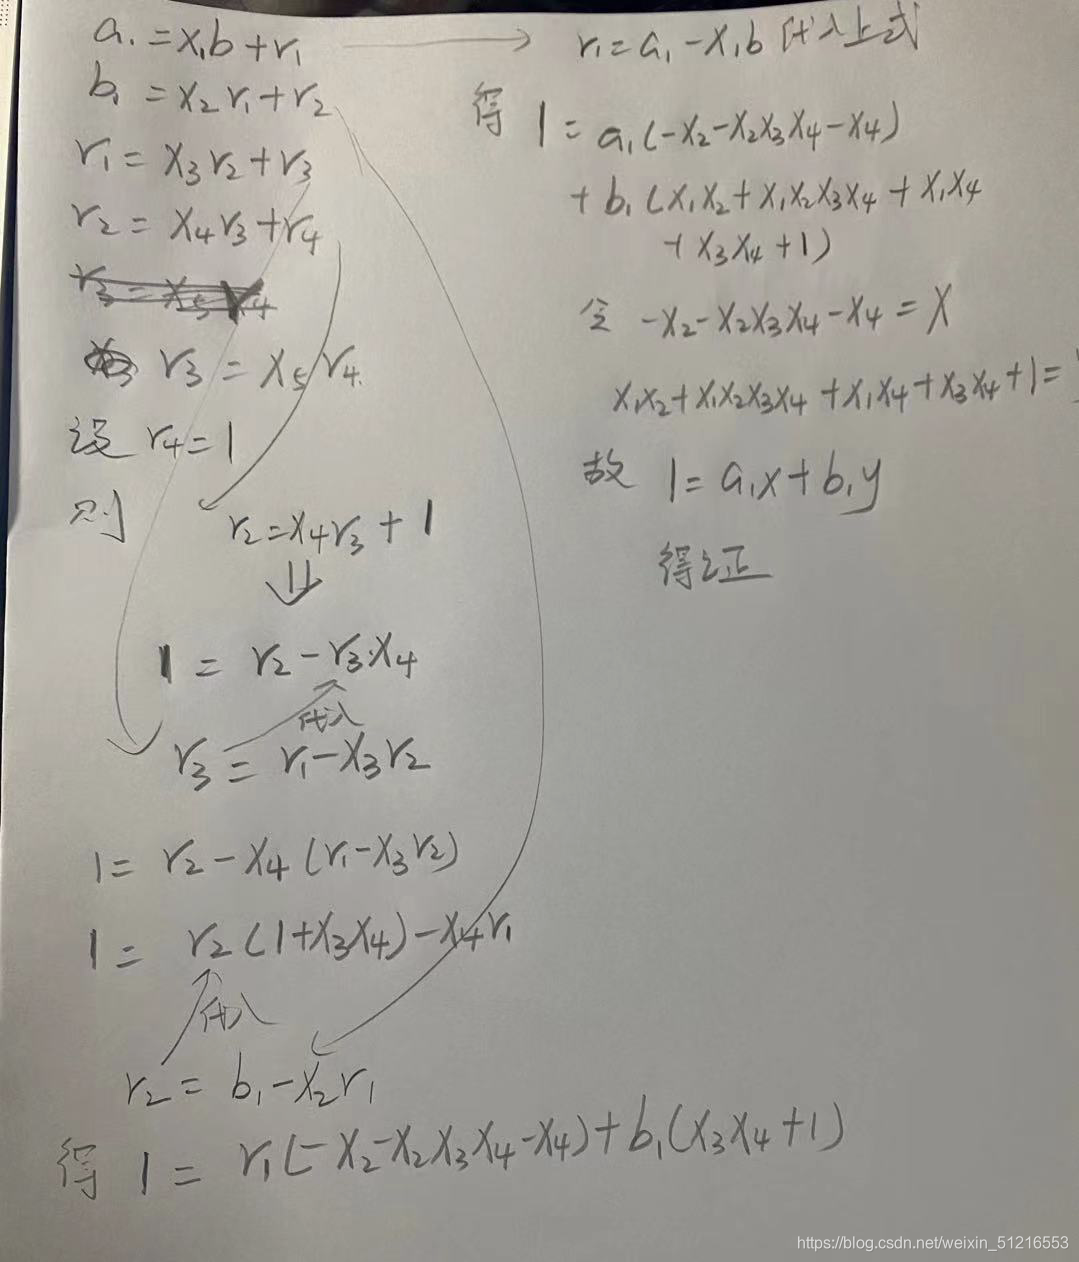 a₁ = x₁b + r₁
b₁ = x₂r₁ + r₂
r₁ = x₃r₂ + r₃
r₂ = x₄r₃ + r₄
r₃ = x₅r₄
r₃ = x₅r₄
设 r₄ = 1
则 r₂ = x₄r₃ + 1
⇓
1 = r₂ - r₃·x₄
代入
r₃ = r₁ - x₃r₂
1 = r₂ - x₄(r₁ - x₃r₂)
1 = r₂(1+x₃x₄) - x₄r₁
代入
r₂ = b₁ - x₂r₁
得 1 = r₁(-x₂-x₂x₃x₄-x₄) + b₁(x₃x₄+1)
r₁ = a₁ - x₁b 代入上式
得 1 = a₁(-x₂-x₂x₃x₄-x₄)
+ b₁(x₁x₂ + x₁x₂x₃x₄ + x₁x₄
+ x₃x₄ + 1)
令 -x₂-x₂x₃x₄-x₄ = X
x₁x₂+x₁x₂x₃x₄+x₁x₄+x₃x₄+1 =
故 1 = a₁x + b₁y
得证
https://blog.csdn.net/weixin_51216553